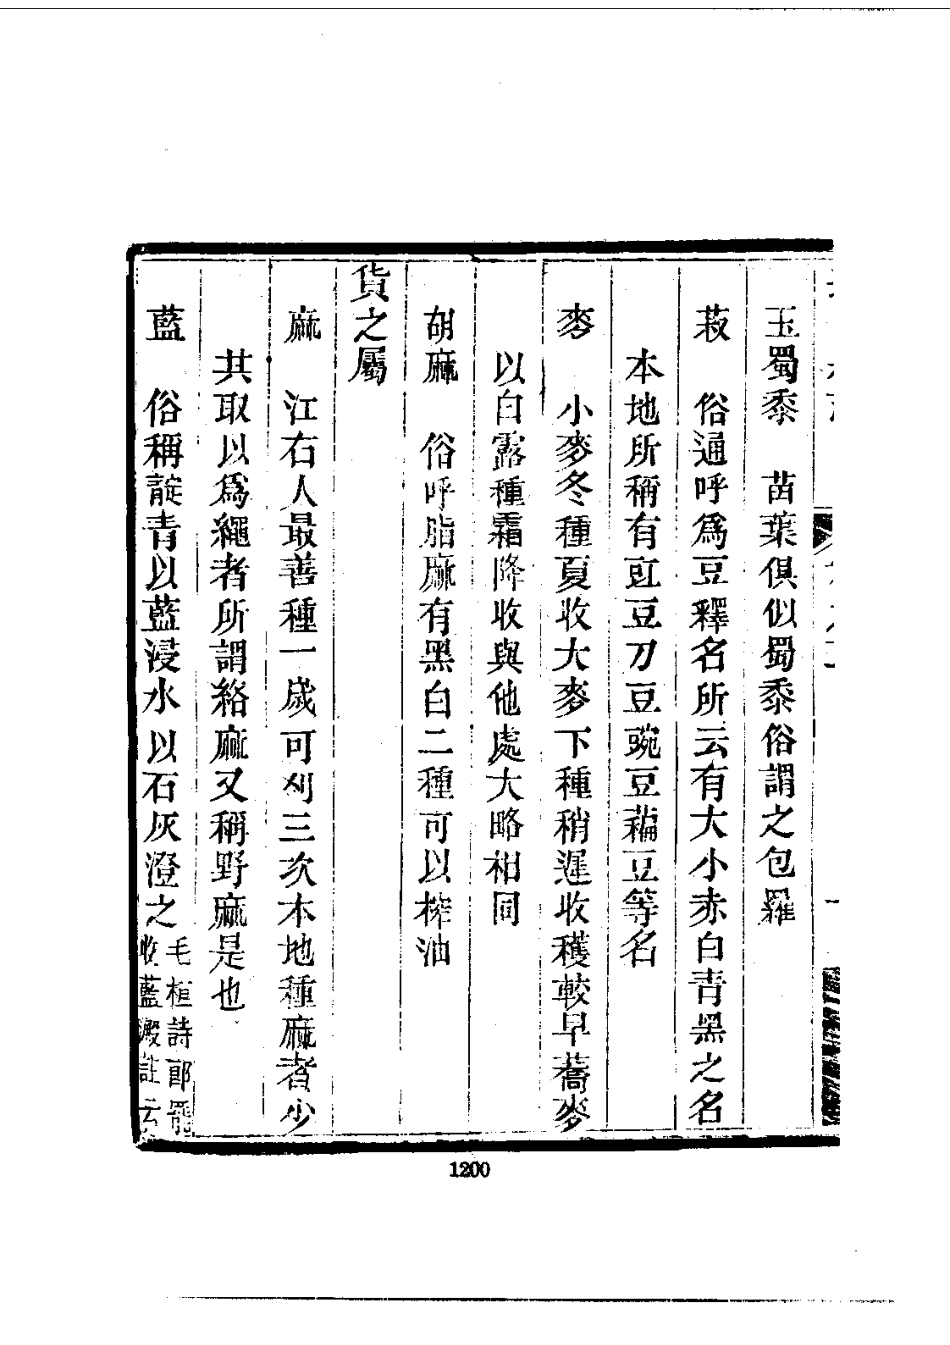 玉蜀黍　苗葉俱似蜀黍俗謂之包羅
菽　俗通呼爲豆釋名所云有大小赤白青黑之名
本地所稱有豇豆刀豆豌豆藊豆等名
麥　小麥冬種夏收大麥下種稍遲收穫較早蕎麥
以白露種霜降收與他處大略相同
胡麻　俗呼脂麻有黑白二種可以榨油
貨之屬
麻　江右人最善種一歲可刈三次本地種麻者少
共取以爲繩者所謂絡麻又稱野麻是也
藍　俗稱靛青以藍浸水以石灰澄之
毛桓詩郎罷
收藍澱註云
1200